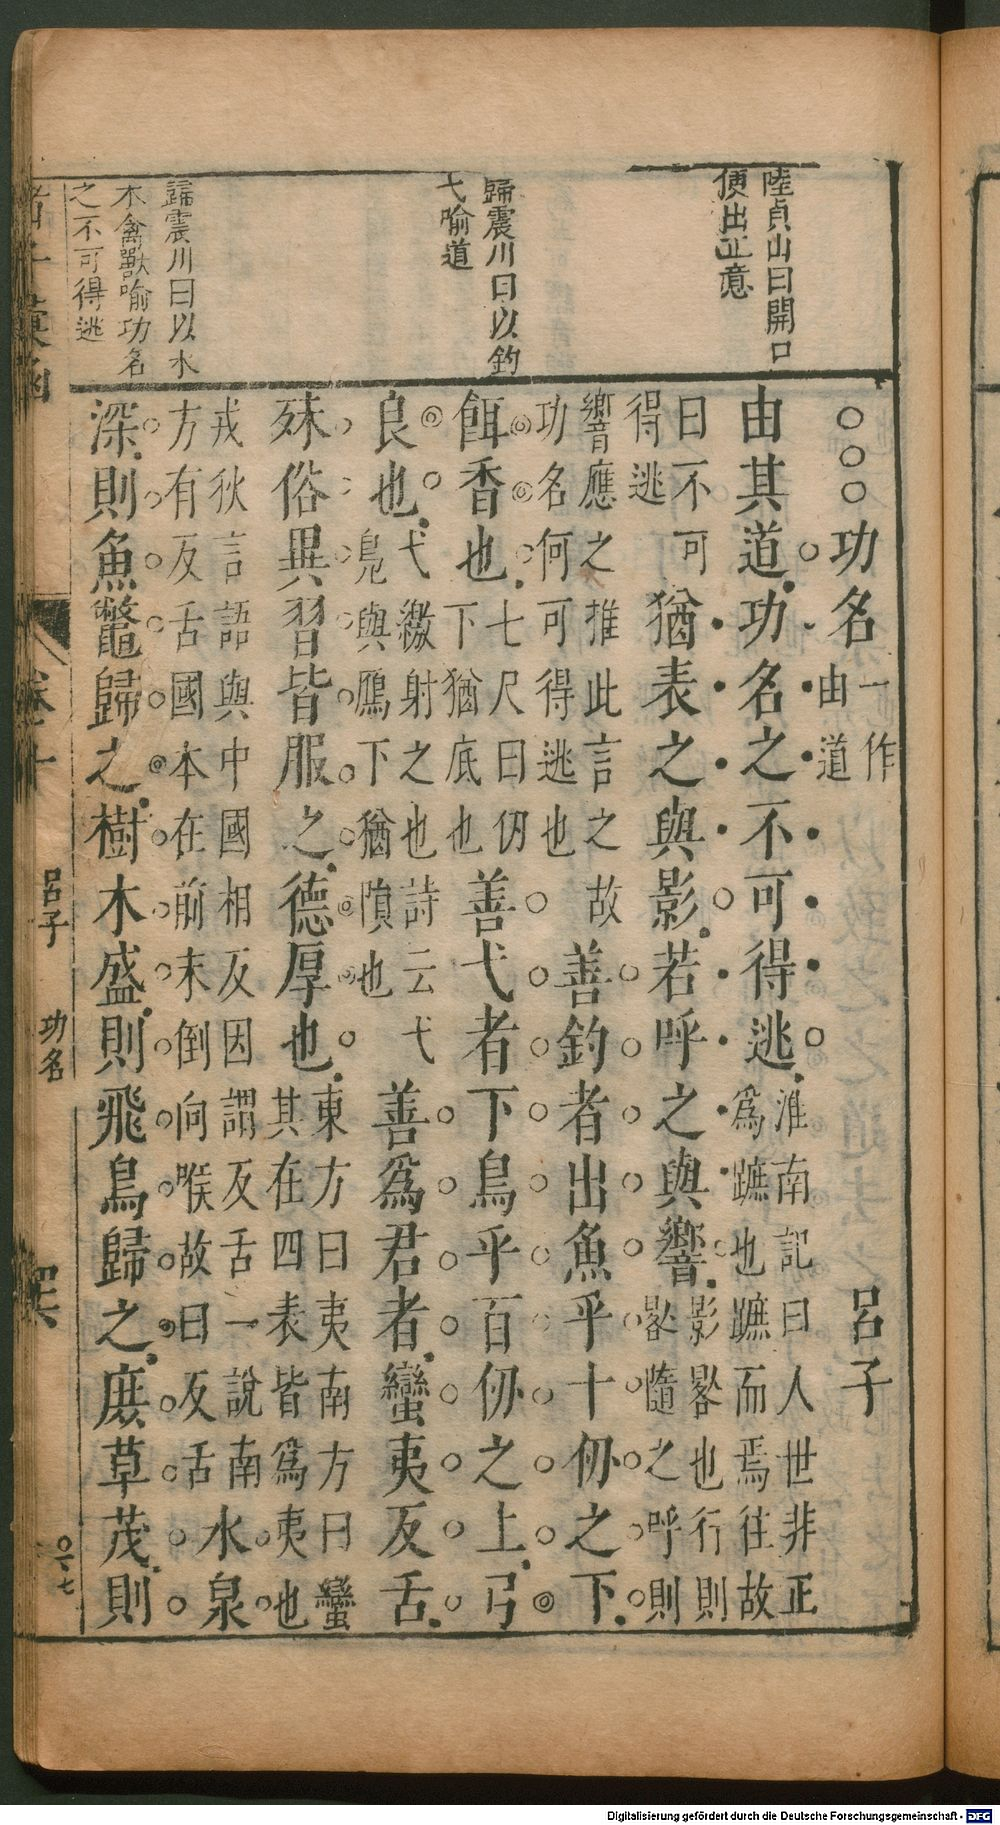 陸貞山曰開口
便出正意
歸震川曰以釣
弋喻道
歸震川曰以水
木禽獸喻功名
之不可得逃
○○○功名
一作
由道
呂子
由其道功名之不可得逃
淮南記曰人世非正
為蹠也蹠而焉往故
曰不可
得逃
猶表之與影若呼之與響
影晷也行則
晷隨之呼則
響應之推此言之故
功名何可得逃也
善釣者出魚乎十仞之下
餌香也
七尺曰仞
下猶底也
善弋者下鳥乎百仞之上弓
良也
弋繳射之也詩云弋
鳧與鴈下猶隕也
善為君者蠻夷反舌
殊俗異習皆服之德厚也
東方曰夷南方曰蠻
其在四表皆為夷也
戎狄言語與中國相反因謂反舌一說南
方有反舌國本在前末倒向喉故曰反舌
水泉
深則魚鼈歸之樹木盛則飛鳥歸之庶草茂則
卷十
呂子
功名
Digitalisierung gefördert durch die Deutsche Forschungsgemeinschaft - DFG